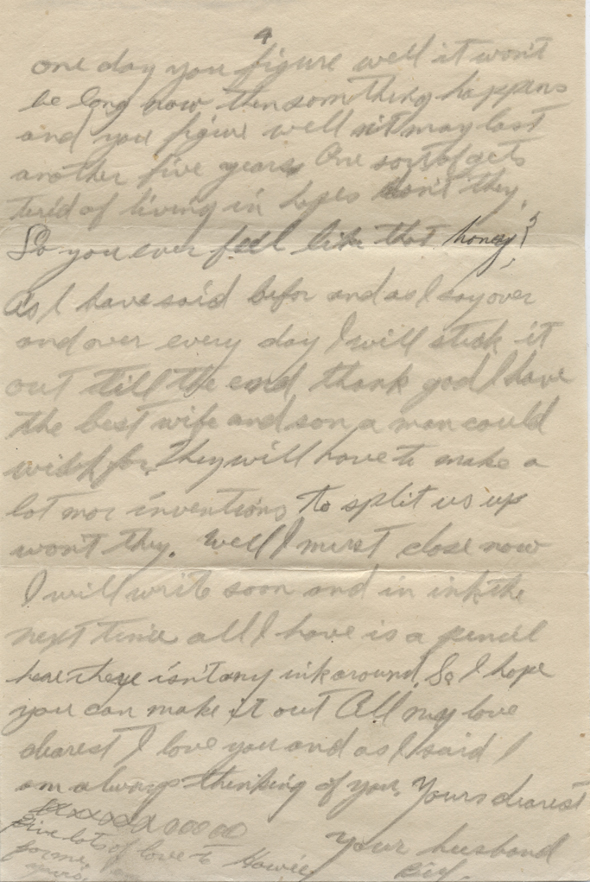 4
one day you figure well it won't
be long now then something happens
and you figure well it may last
another five years One sort of gets
tierd of living in hopes don't they.
Do you ever feel like that honey?
As I have said befor and as I say over
and over every day I will stick it
out till the end thank god I have
the best wife and son a man could
wish for. They will have to make a
lot mor inventions to split us up
won't they. Well I must close now
I will write soon and in ink the
next time all I have is a pencil
here there isn't any ink around. So I hope
you can make it out All my love
dearest I love you and as I said I
am always thinking of you. Yours dearest
xxxxxxx ooooo
Your husband
Give lots of love to Howie
for me